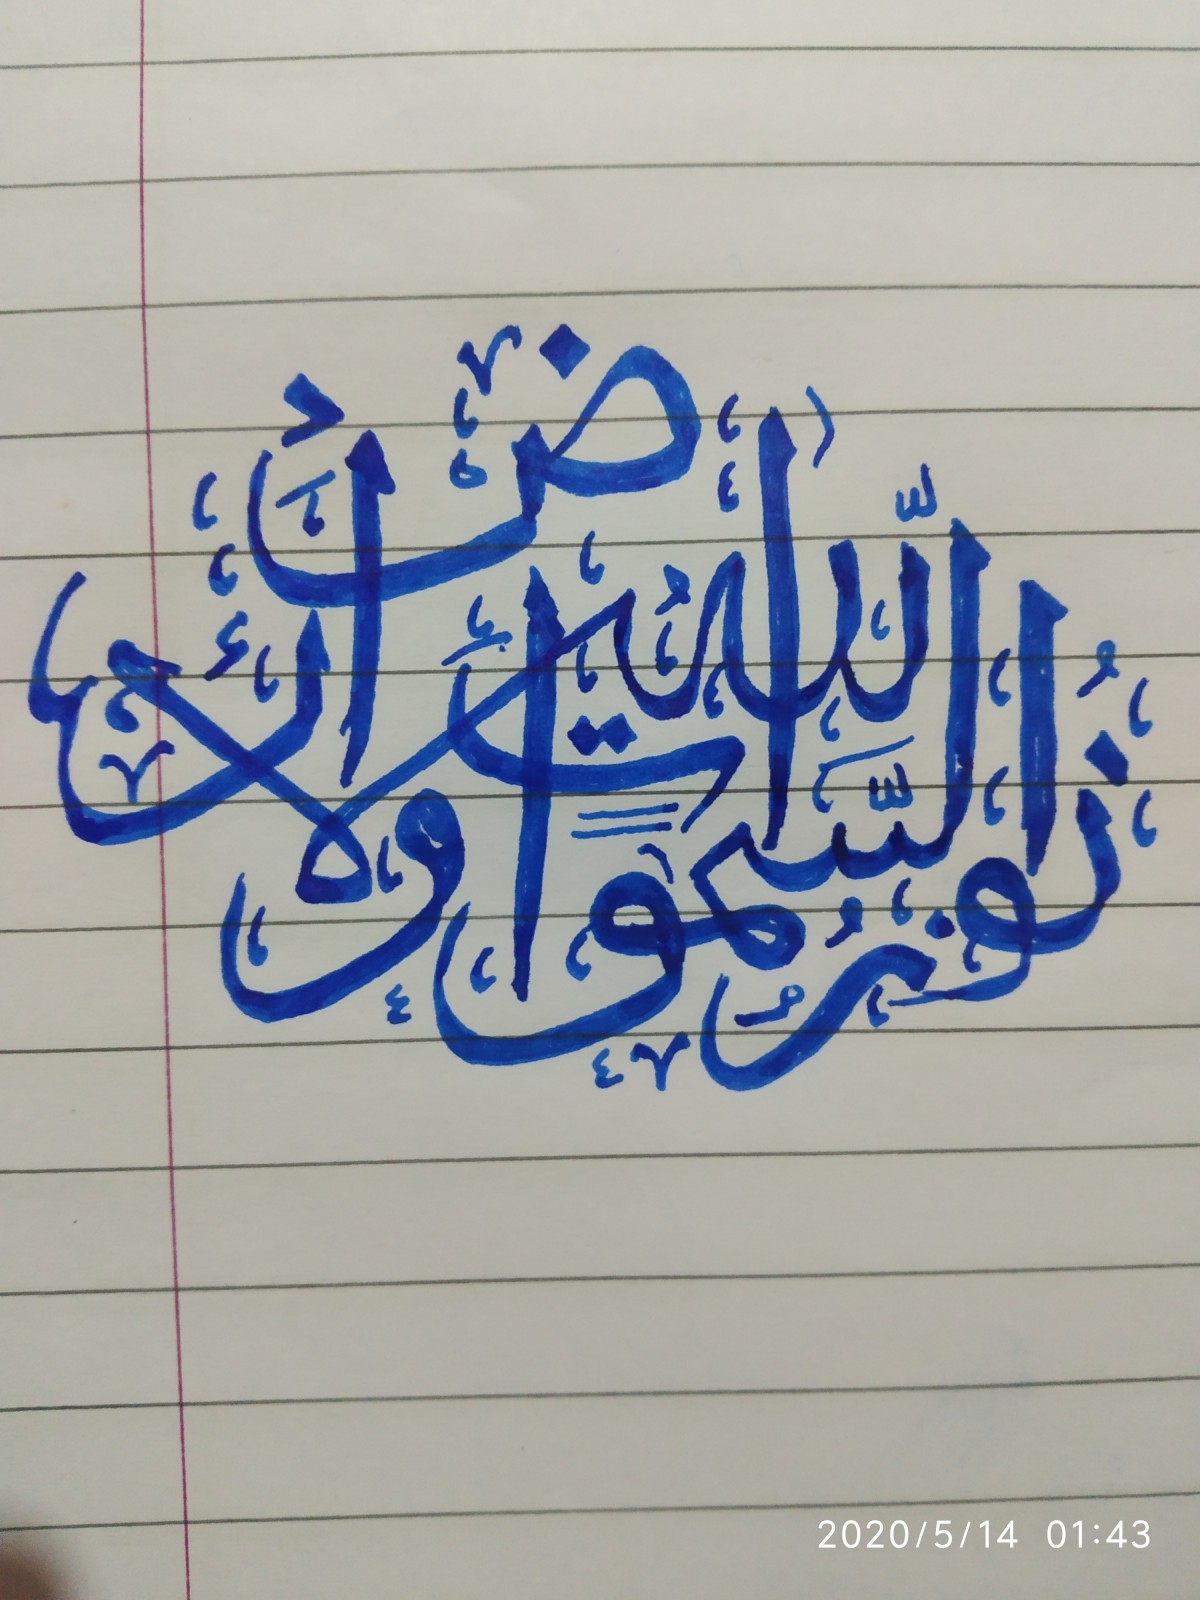 اللَّهُ نُورُ السَّمٰوَاتِ وَالْأَرْضِ
2020/5/14 01:43